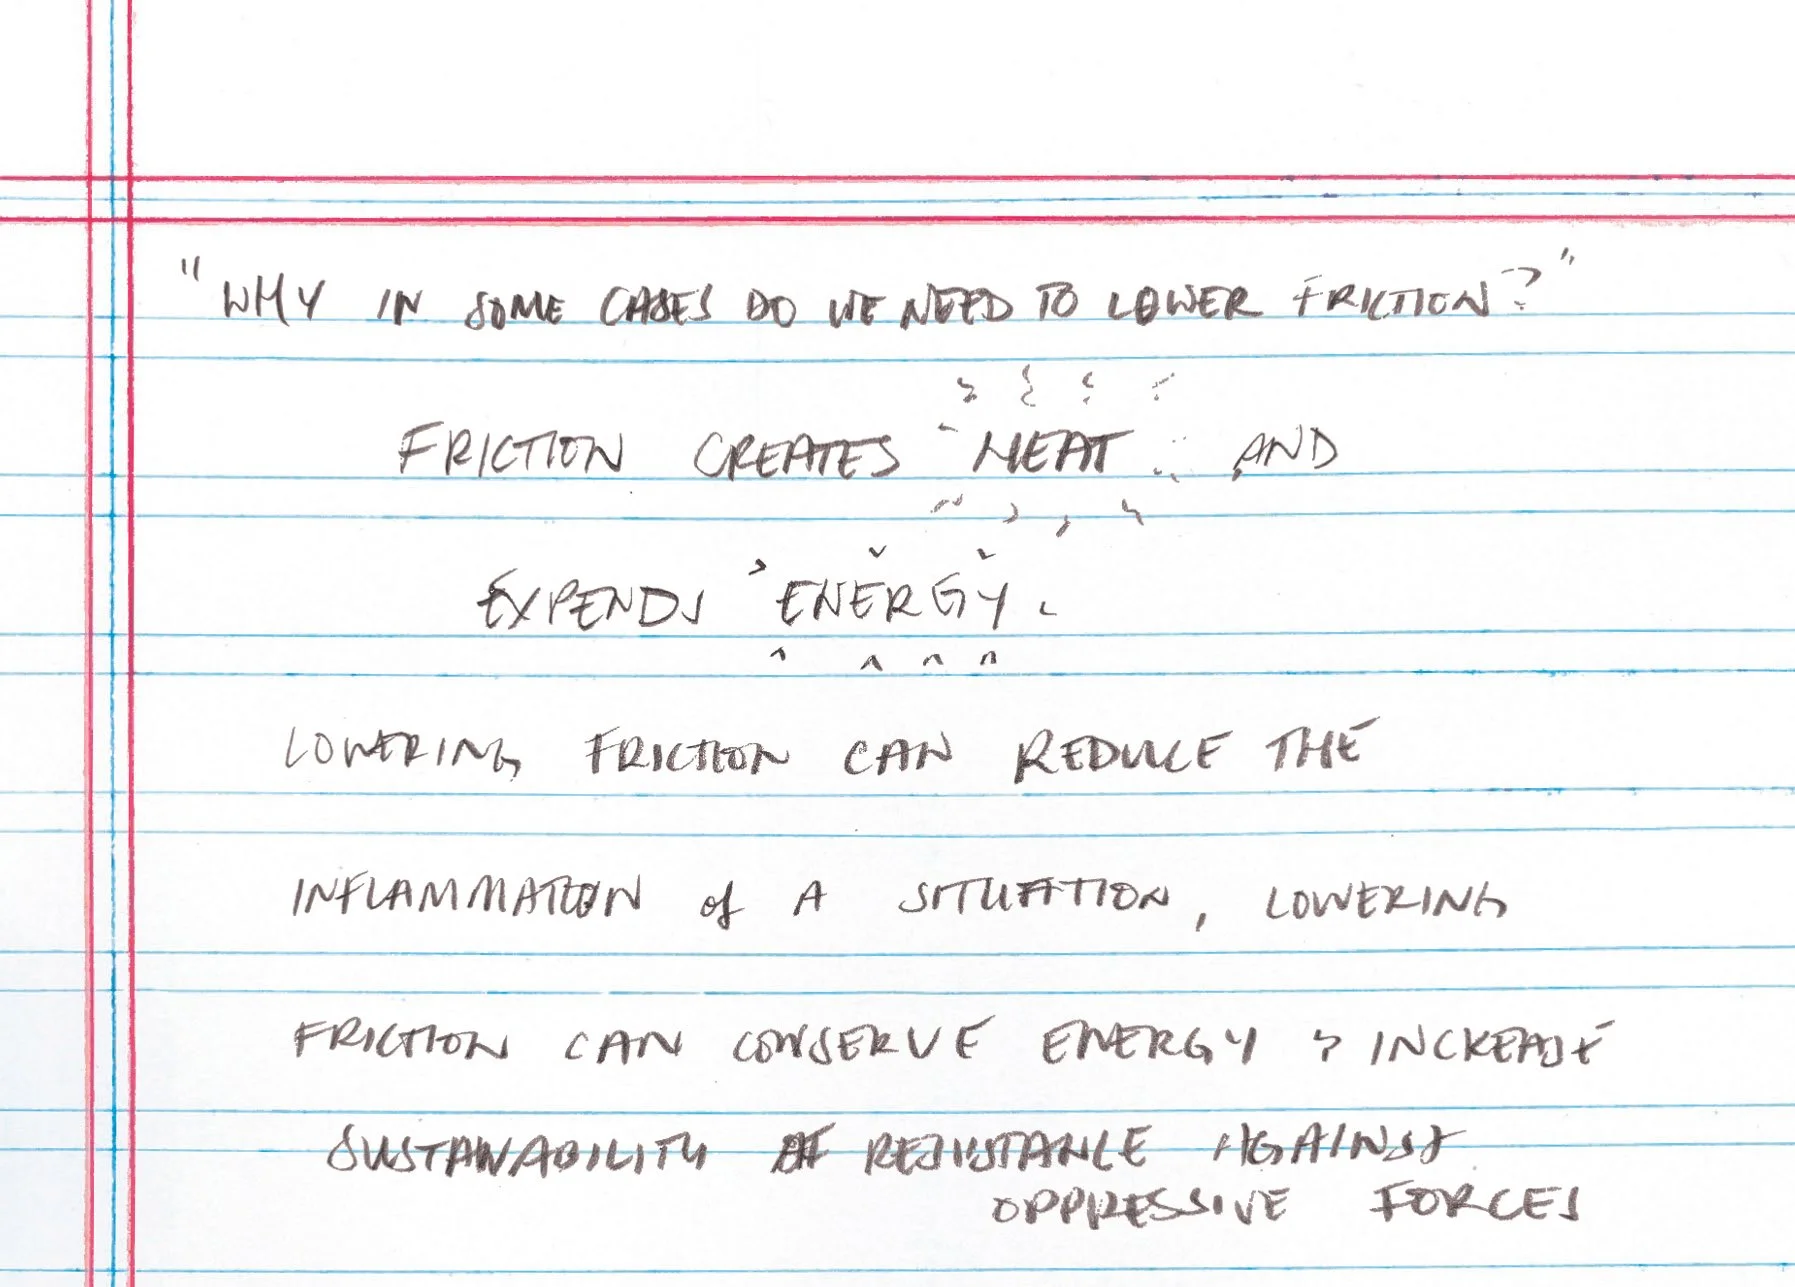 "WHY IN SOME CASES DO WE NEED TO LOWER FRICTION?"
FRICTION CREATES HEAT AND
EXPENDS ENERGY.
LOWERING FRICTION CAN REDUCE THE
INFLAMMATION of A SITUATION, LOWERING
FRICTION CAN CONSERVE ENERGY & INCREASE
SUSTAINABILITY OF RESISTANCE AGAINST
OPPRESSIVE FORCES